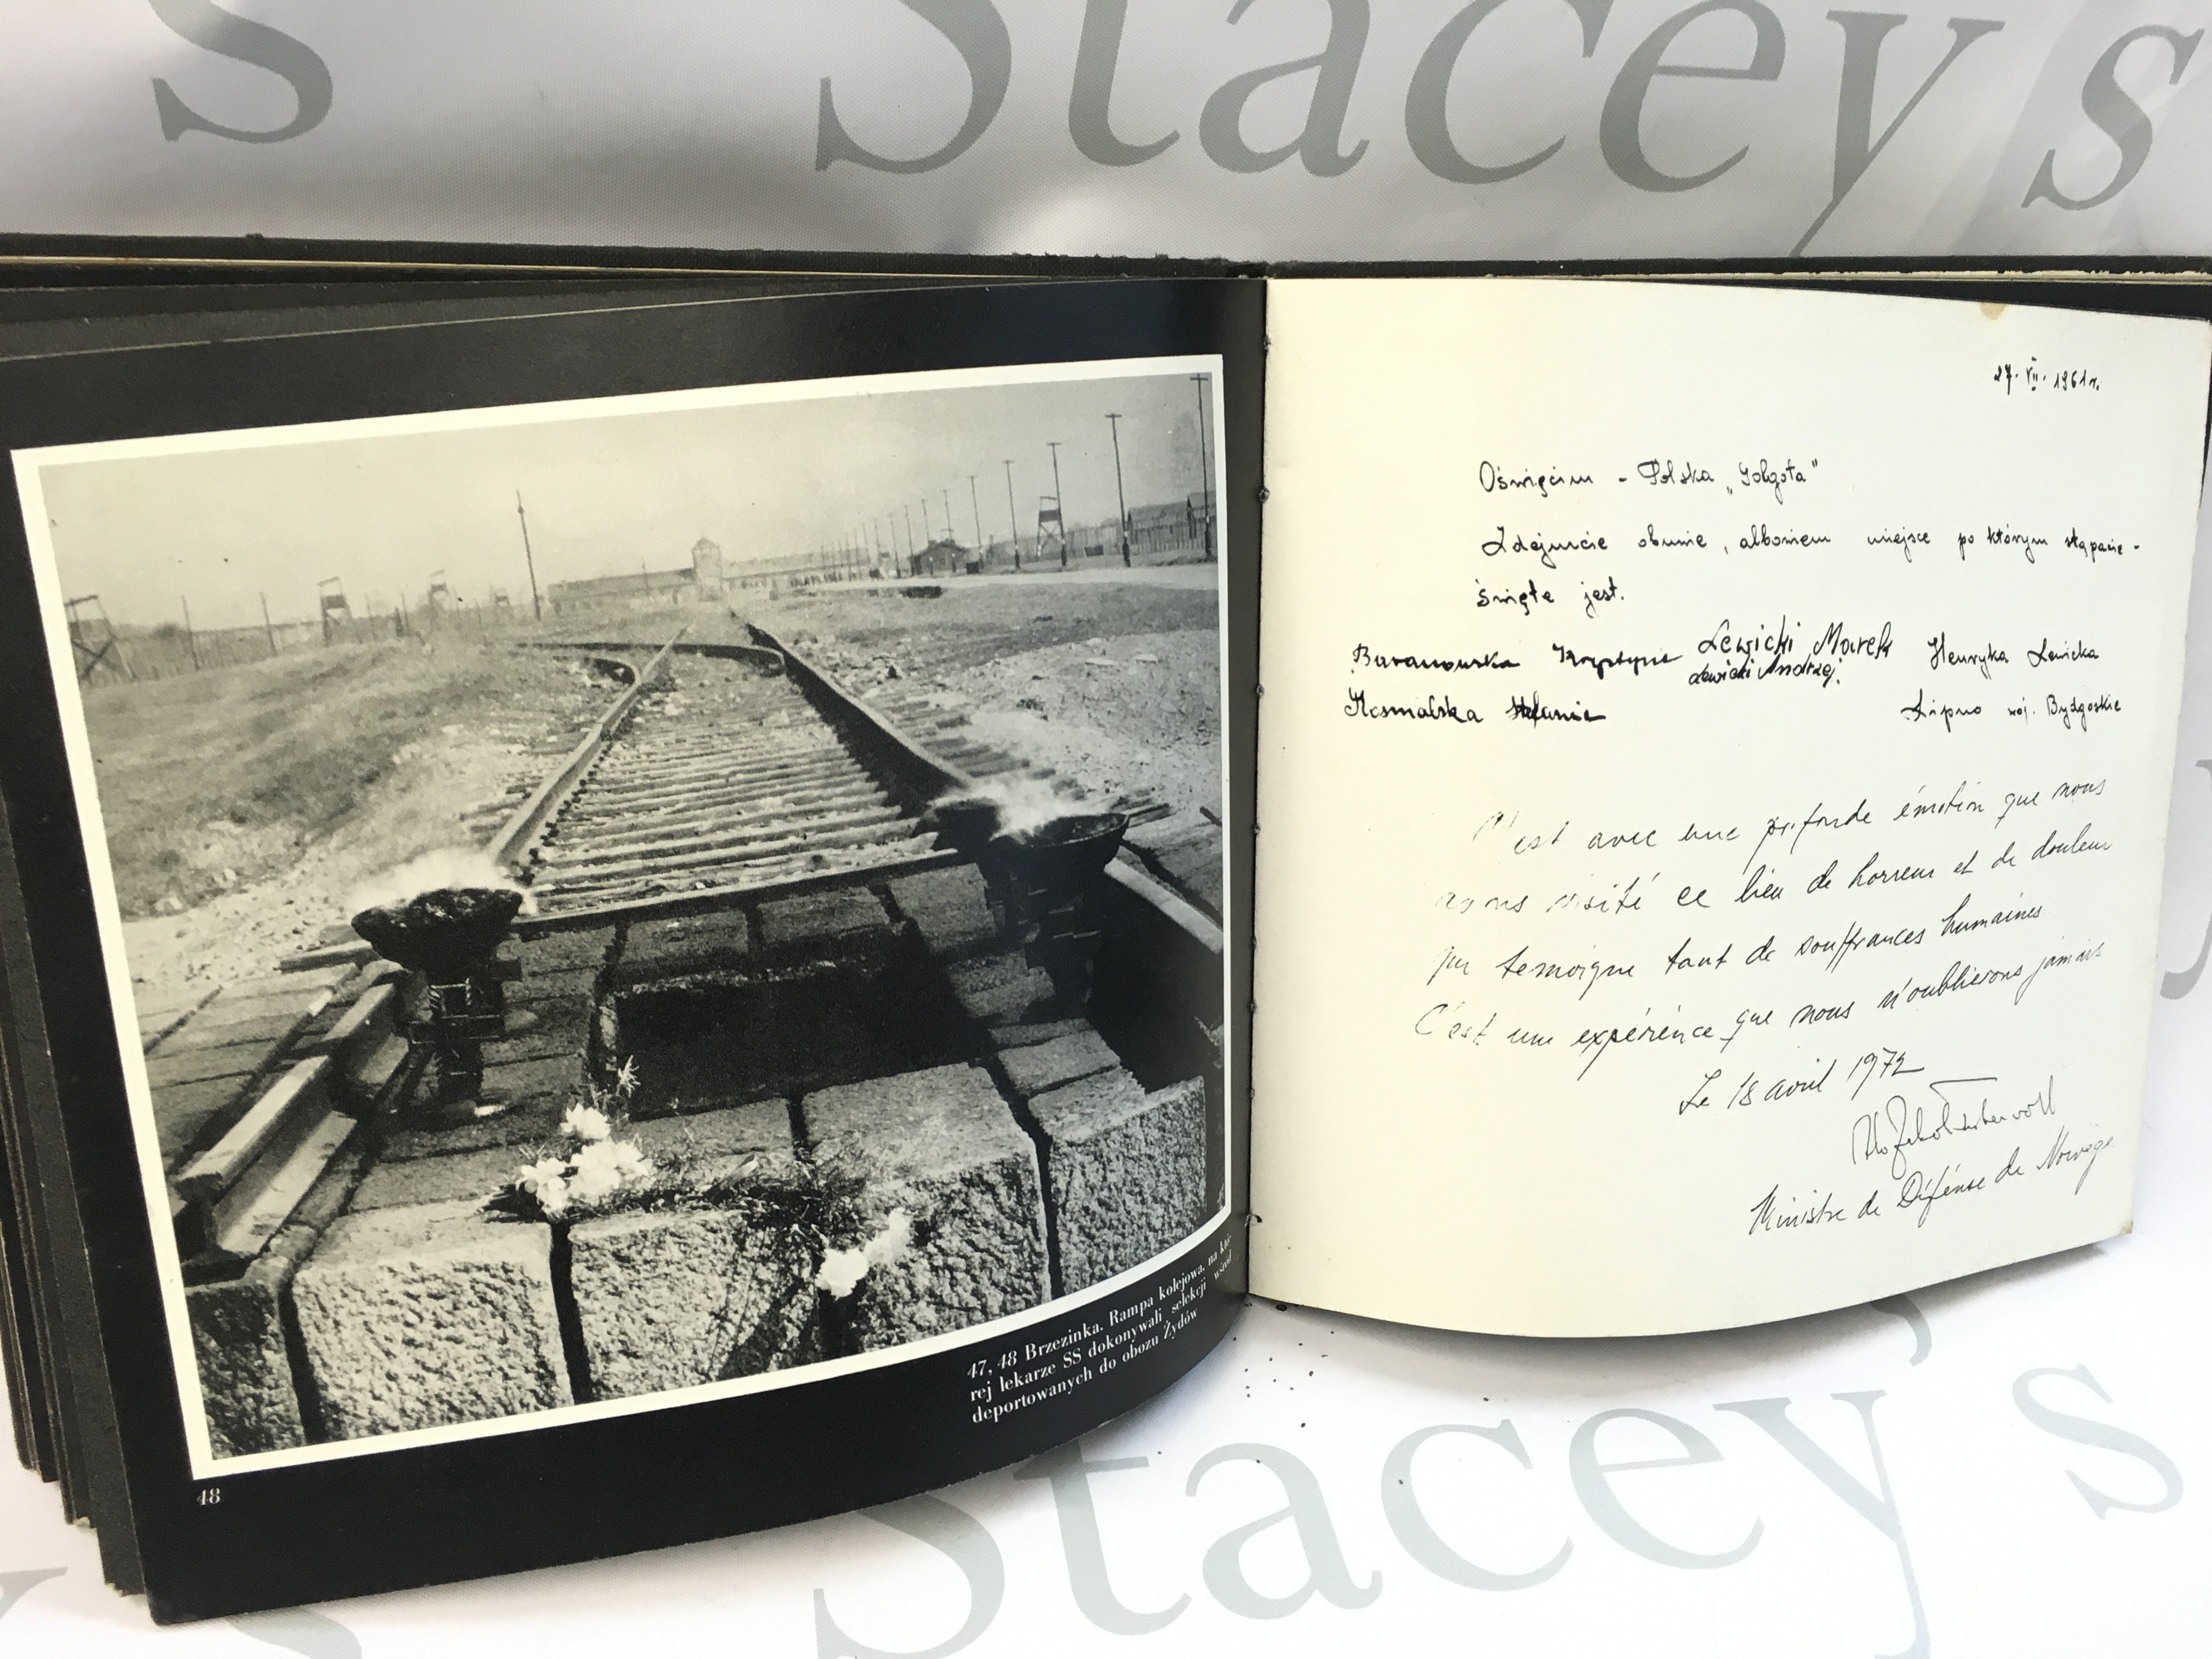 s Stacey's
27. VII. 1961 r.
Oświęcim - Polska „Golgota"
Zdejmcie obuwie, albowiem miejsce po którym stąpacie -
święte jest.
Baranowska Krystyna Lewicki Marek Henryka Lewicka
Lewicki Andrzej.
Kosmalska Stefania Lipno woj. Bydgoskie
C'est avec une profonde émotion que nous
avons visité ce lieu de horreur et de douleur
qui temoigne tant de souffrances humaines
C'est une expérience que nous n'oublierons jamais
Le 18 avril 1972
Ministre de Défense de Norvège
47, 48 Brzezinka. Rampa kolejowa, na któ-
rej lekarze SS dokonywali selekcji wśród
deportowanych do obozu Żydów
48
Stacey's